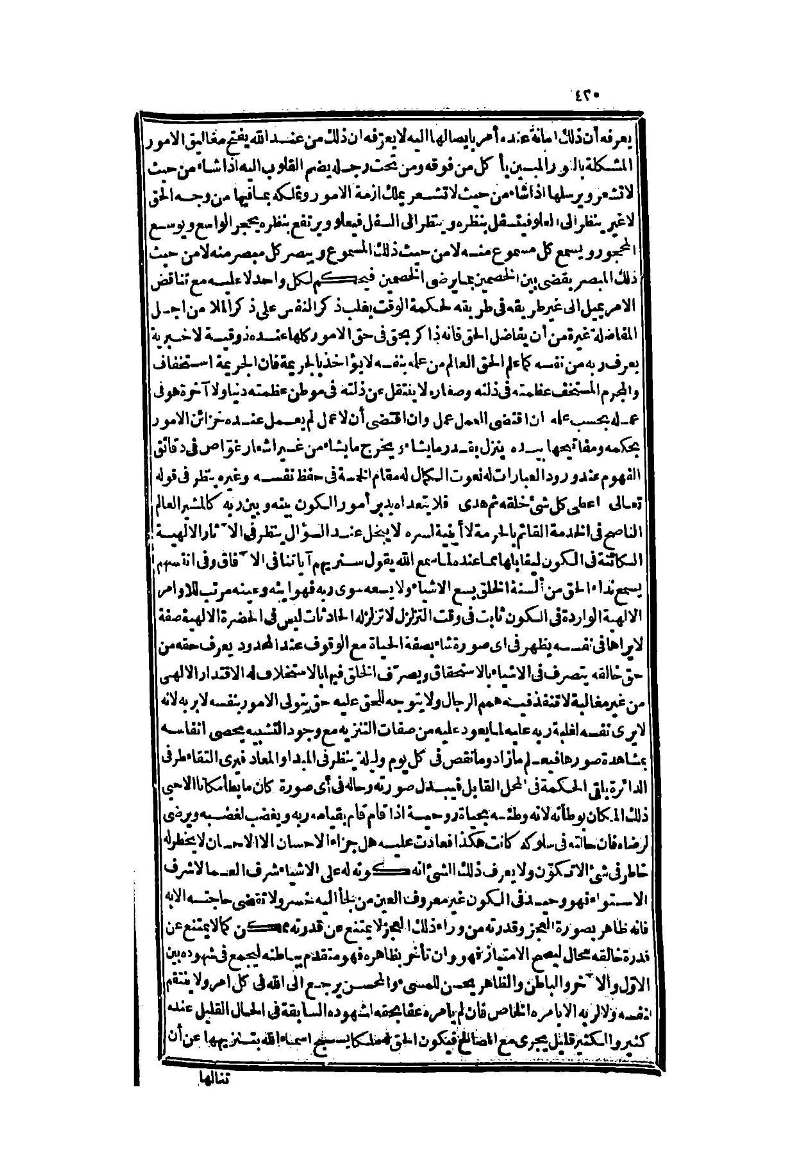 ٤٢٠
يعرفه أن ذلك امانة عنده أمر بايصالها اليه لا يعرفه ان ذلك من عند الله يفتح مغاليق الامور
المشكلة بالنور المبين يأكل من فوقه ومن تحت رجله يضم القلوب اليه اذا شاء من حيث
لا تشعر ويرسلها اذا شاء من حيث لا تشعر يملك ازمة الامور وتملكه بما فيها من وجه الحق
لا غير ينظر الى العلو فيتسفل بنظره وينظر الى السفل فيعلو ويرتفع بنظره يحجر الواسع ويوسع
المحجور ويسمع كل مسموع منه لا من حيث ذلك المسموع ويبصر كل مبصر منه لا من حيث
ذلك المبصر يقضى بين الخصمين بما يرضى الخصمين فيحكم لكل واحد لا عليه مع تناقض
الامر يميل الى غير طريقه فى طريقه لحكمة الوقت يغلب ذكر النفس على ذكر الملا من اجل
المفاضلة غيرة من أن يفاضل الحق فانه ذاكر بحق فى حق الامور كلها عنده ذوقية لا خبرية
يعرف ربه من نفسه كما علم الحق العالم من علمه بنفسه لا يؤاخذ بالجريمة فان الجريمة استخفاف
والمجرم المستخف عظمته فى ذلته وصغاره لا ينتقل عن ذلته فى موطن عظمته دنيا ولا آخرة هو فى
عمله بحسب علمه ان اقتضى العمل عمل وان اقتضى أن لا عمل لم يعمل عنده خزائن الامور
بحكمه ومفاتيحها بيده ينزل بقدر ما يشاء ويخرج ما يشاء من غير اشهار غواص فى دقائق
الفهوم عند ورود العبارات له نعوت الكمال له مقام الخمسة فى حفظ نفسه وغيره ينظر فى قوله
تعالى اعطى كل شئ خلقه ثم هدى فلا يتعداه يدبر أمور الكون بينه وبين ربه كالمشير العالم
الناصح فى الخدمة القائم بالحرمة لا أينية لسره لا يبخل عند السؤال ينظر فى الآثار الالهية
الكائنة فى الكون ليقابلها بما عنده لما سمع الله يقول سنريهم آياتنا فى الآفاق وفى انفسهم
يسمع نداء الحق من ألسنة الخلق يسع الاشياء ولا يسعه سوى ربه فهو ابنه وعينه مرتب للاوامر
الالهية الواردة فى الكون ثابت فى وقت التزلزل لا تزلزله الحادثات ليس فى الحضرة الالهية صفة
لا يراها فى نفسه يظهر فى اى صورة شاء بصفة الحياة مع الوقوف عند المحدود يعرف حقه من
حق خالقه يتصرف فى الاشياء بالاستحقاق ويصرف الخلق فيها بالاستخلاف له الاقتدار الالهى
من غير مغالبة لا تنفذ فيه همم الرجال ولا يتوجه للحق عليه حق يتولى الامور بنفسه لا بربه لانه
لا يرى نفسه لغلبة ربه عليه لما يعود عليه من صفات التنزيه مع وجود التشبيه يحصى انفاسه
بمشاهدة صورها فيعلم ما زاد وما نقص فى كل يوم وليلة ينظر فى المبدا والمعاد فيرى التقاء طرفى
الدائرة يلقى الحكمة فى المحل القابل فيبدل صورته وحاله فى أى صورة كان ما يطأ مكانا الا حيى
ذلك المكان بوطأته لانه وطئه بحياة روحية اذا قام قام بقيامه ربه ويغضب لغضبه ويرضى
لرضاه فان حالته فى سلوكه كانت هكذا فعادت عليه هل جزاء الاحسان الا الاحسان لا يخطر له
خاطر فى شئ الا تكوّن ولا يعرف ذلك الشئ انه كونه له على الاشياء شرف العماء لا شرف
الاستواء فهو وحيد فى الكون غير معروف العين من لجأ اليه خسر ولا تقضى حاجته الا به
فانه ظاهر بصورة العجز وقدرته من وراء ذلك العجز لا يمتنع عن قدرته ممكن كما لا يمتنع عن
قدرة خالقه محال ليصح الامتياز فهو وان تأخر بظاهره فهو متقدم بباطنه ليجمع فى شهوده بين
الاوّل والآخر والباطن والظاهر يحسن للمسىء والمحسن يرجع الى الله فى كل امر ولا ينتقم
لنفسه ولا لربه الا بامره الخاص فان لم يامره عفا بحقه لشهوده السابقة فى الحال القليل عنده
كثير والكثير قليل يجرى مع المصالح فيكون الحق له ملكا يسبح اسماء الله بتنزيهها عن أن
تنالها